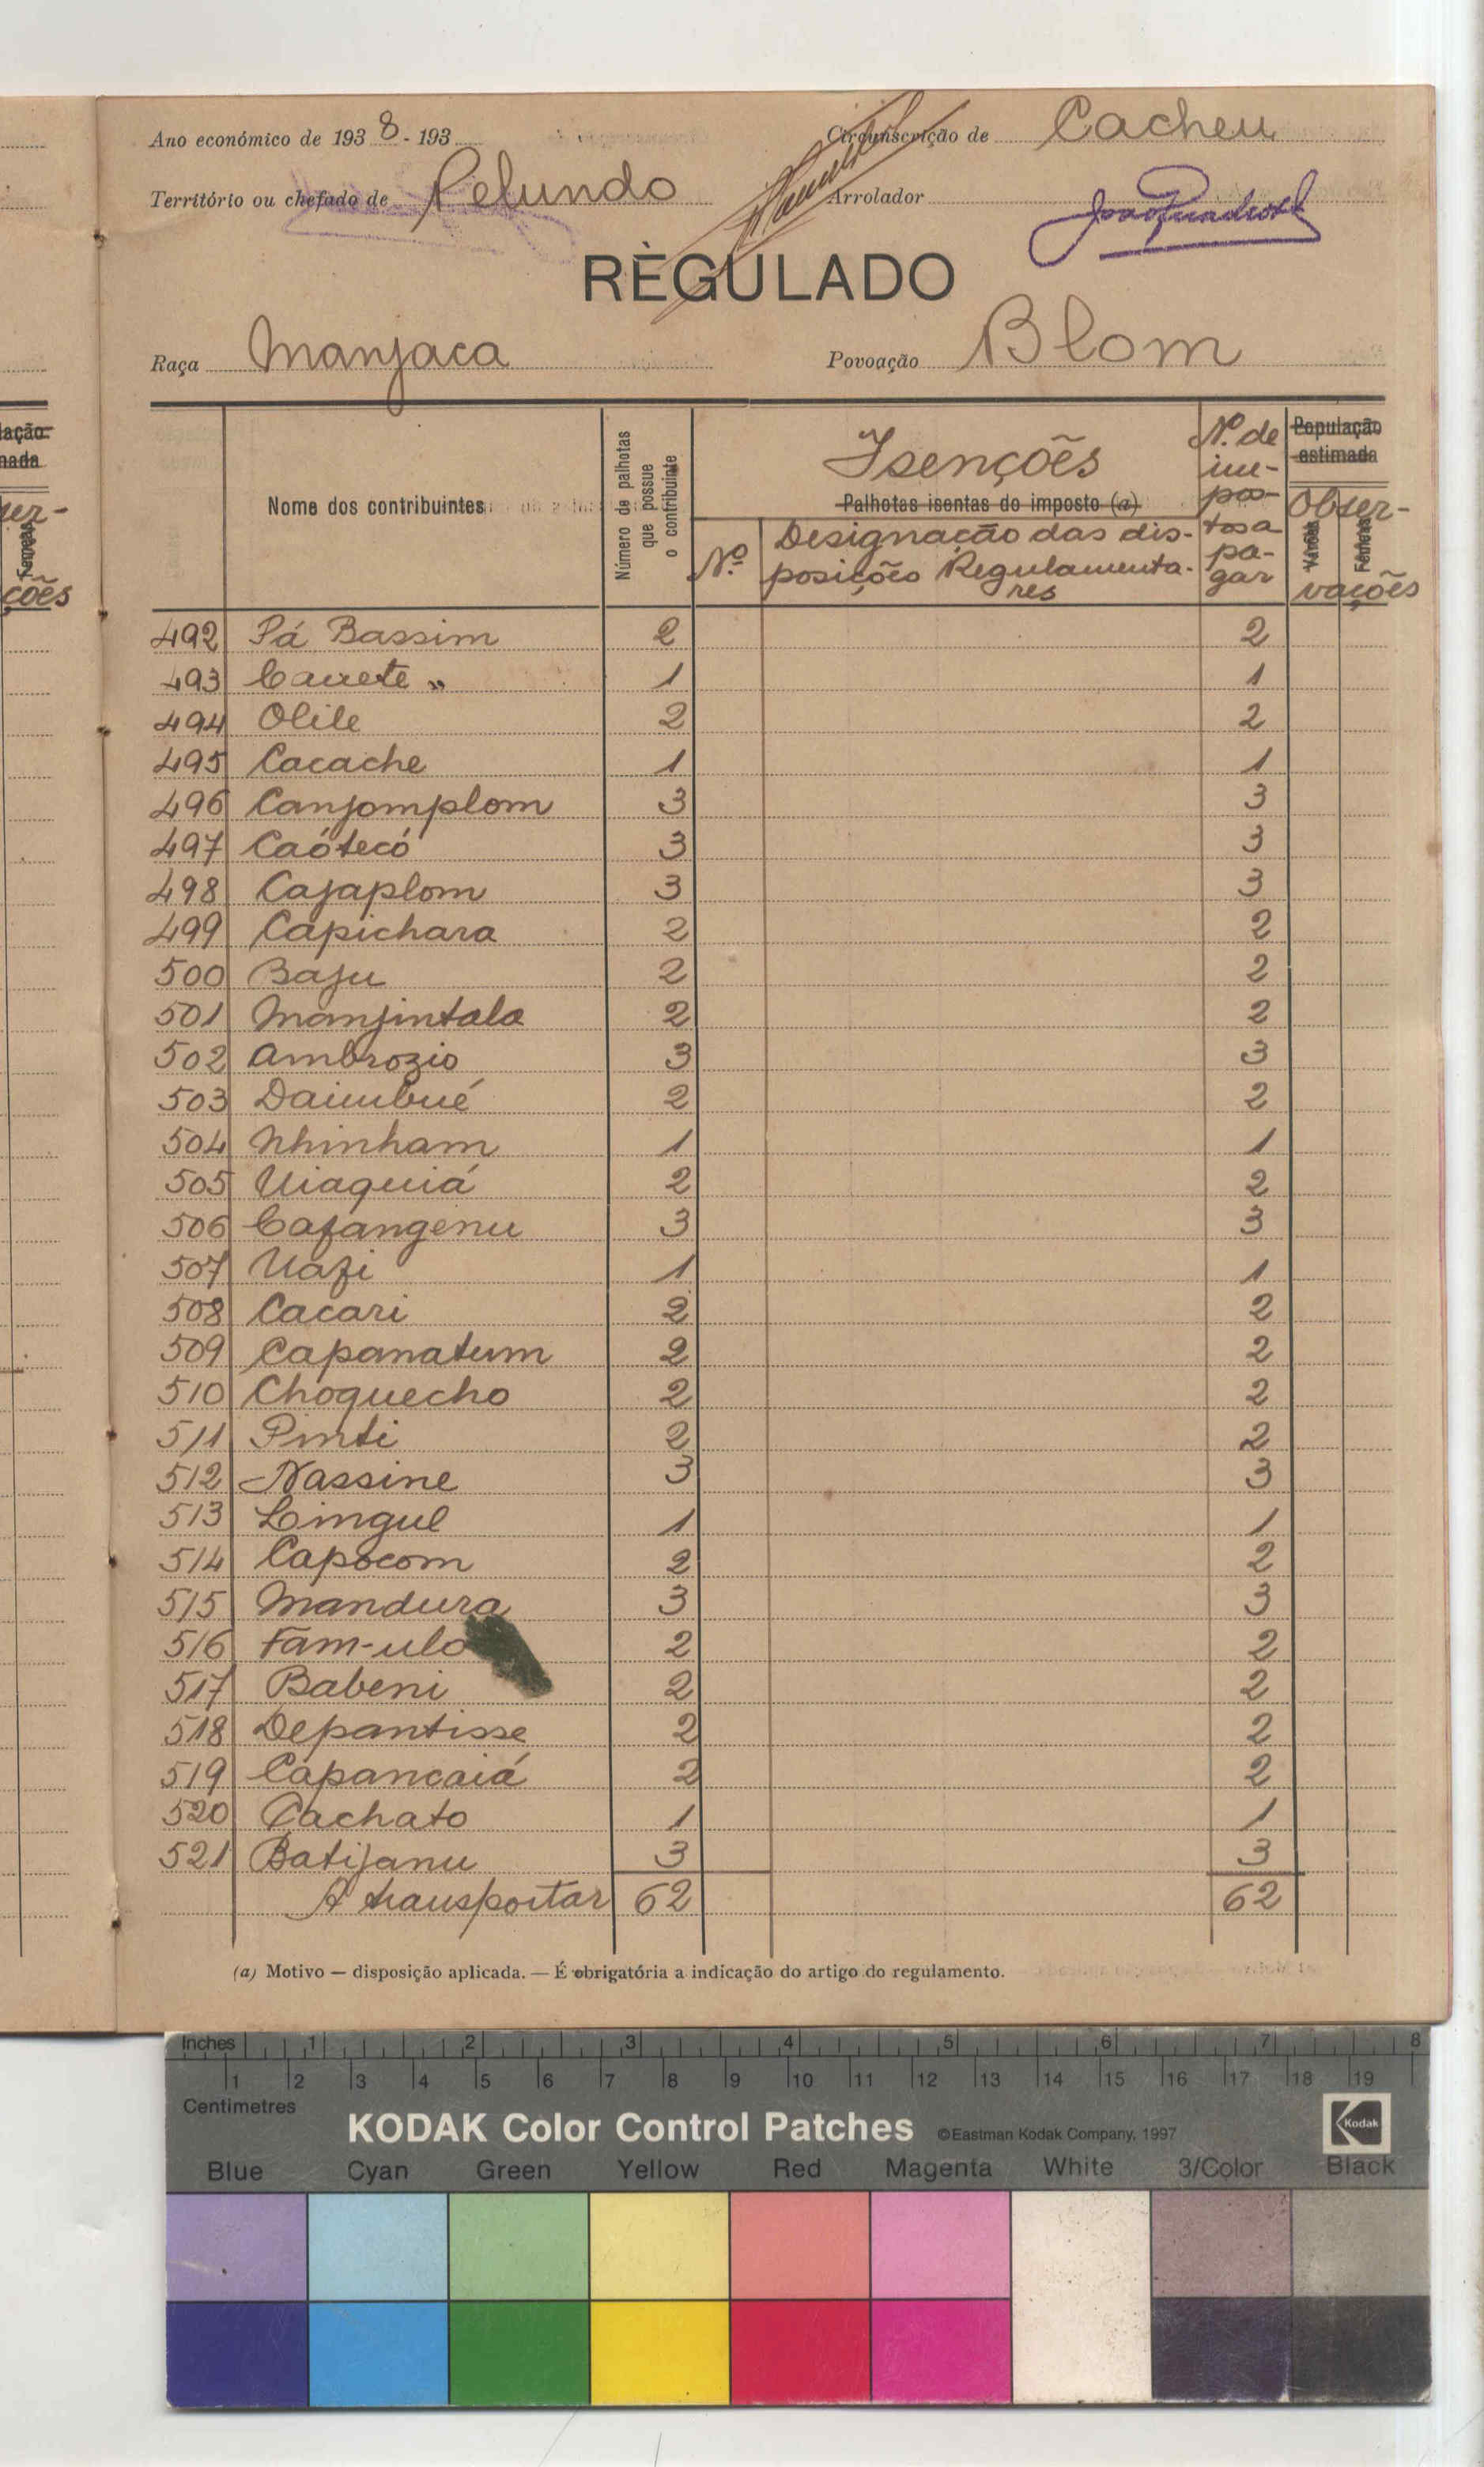 Ano económico de 1938-193
Circunscrição de Cacheu
Território ou chefado de Pelundo
Arrolador
REGULADO
Raça Manjaca
Povoação Blom
Nome dos contribuintes
Número de palhotas que possue o contribuinte
Isenções
Palhotas isentas do imposto (a)
Nº
Designação das disposições Regulamentares
Nº de impostos a pagar
População estimada
Observações
Varões
Femeas
492 Pá Bassim 2 2
493 Cauete „ 1 1
494 Olile 2 2
495 Cacache 1 1
496 Canjomplom 3 3
497 Caótecó 3 3
498 Cajaplom 3 3
499 Capichara 2 2
500 Baju 2 2
501 Manjintala 2 2
502 Ambrozio 3 3
503 Daimbué 2 2
504 Nhinham 1 1
505 Uiaquiá 2 2
506 Cafangenu 3 3
507 Uafi 1 1
508 Cacari 2 2
509 Capanatum 2 2
510 Choquecho 2 2
511 Pinti 2 2
512 Nassine 3 3
513 Lingul 1 1
514 Capocom 2 2
515 Mandura 3 3
516 Fam-ulo 2 2
517 Babeni 2 2
518 Depantisse 2 2
519 Capancaiá 2 2
520 Cachato 1 1
521 Batijanu 3 3
A transportar 62 62
(a) Motivo — disposição aplicada. — É obrigatória a indicação do artigo do regulamento.
Inches 1 2 3 4 5 6 7 8
1 2 3 4 5 6 7 8 9 10 11 12 13 14 15 16 17 18 19
Centimetres
KODAK Color Control Patches ©Eastman Kodak Company, 1997 Kodak
Blue Cyan Green Yellow Red Magenta White 3/Color Black